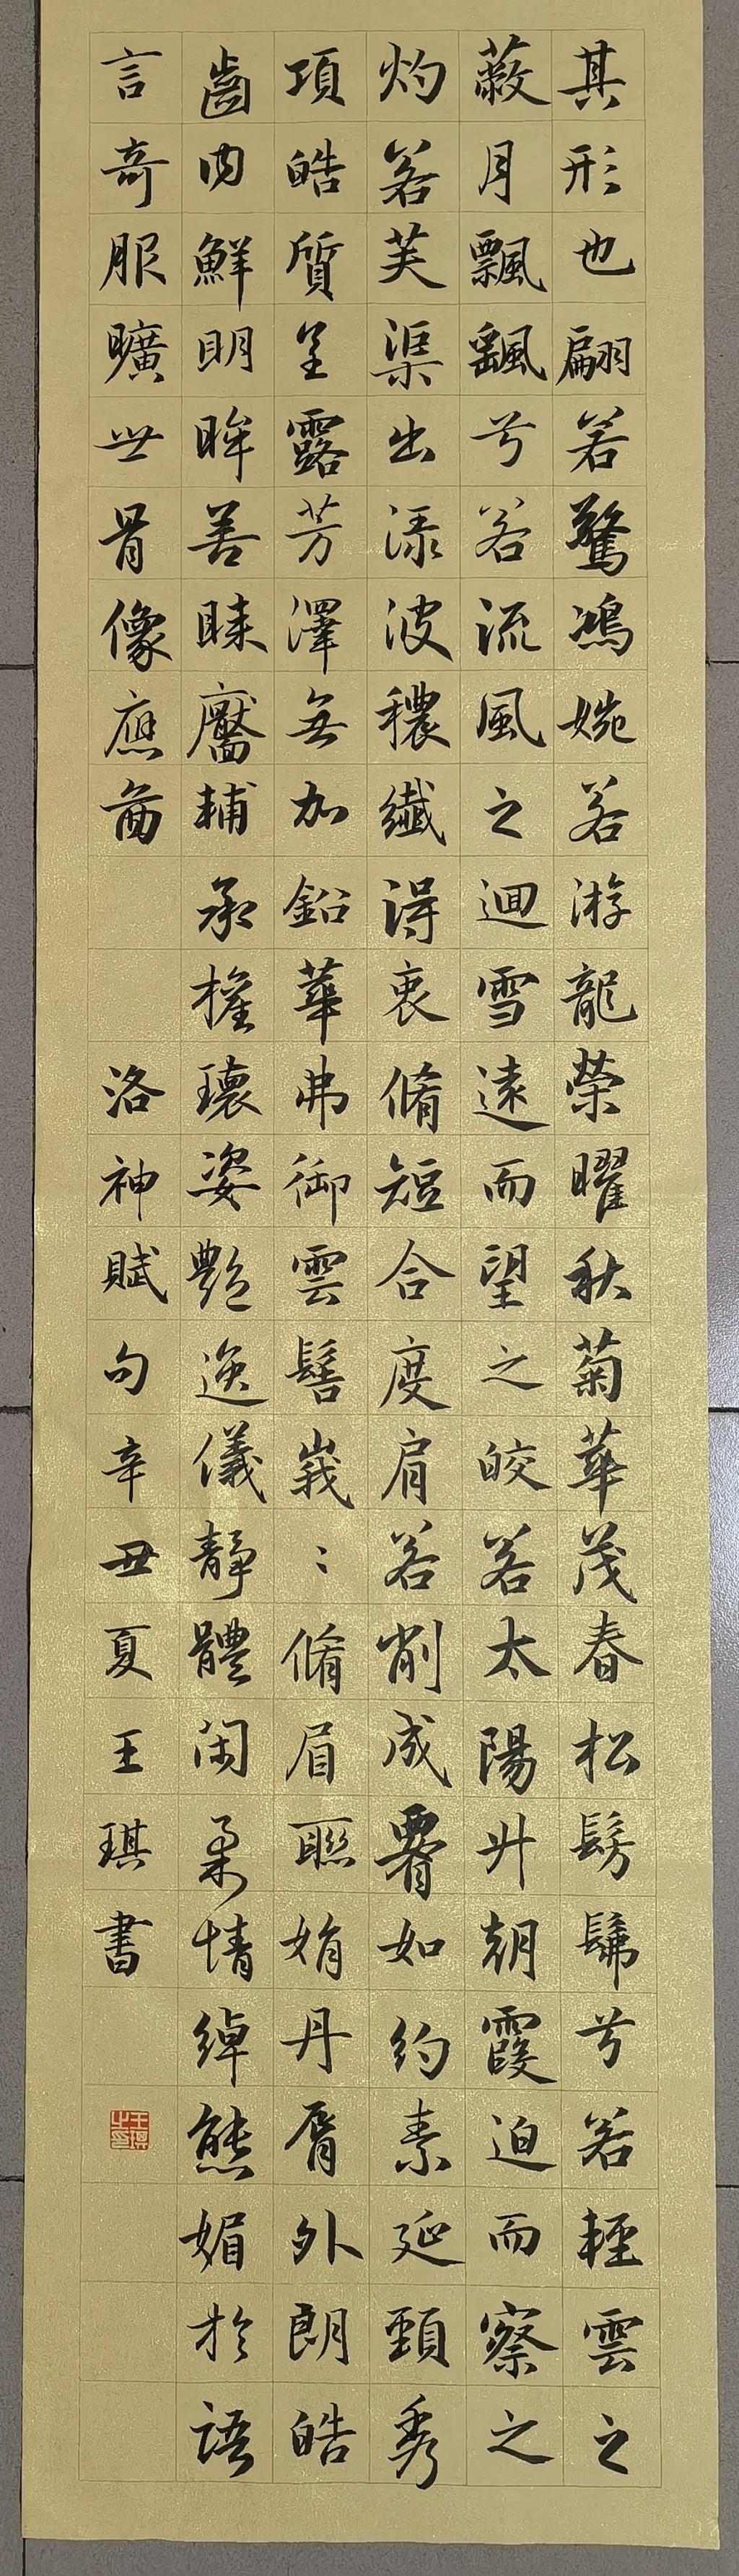 其形也翩若驚鴻婉若游龍榮曜秋菊華茂春松髣髴兮若輕雲之
蔽月飄飖兮若流風之迴雪遠而望之皎若太陽升朝霞迫而察之
灼若芙渠出渌波穠纖得衷脩短合度肩若削成𦝫如約素延頸秀
項皓質呈露芳澤無加鉛華弗御雲髻峩〻脩眉聯娟丹脣外朗皓
齒内鮮明眸善睞靨輔承權瓌姿艷逸儀靜體閑柔情綽態媚於語
言奇服曠世骨像應啚 洛神賦句辛丑夏王琪書
王琪之印